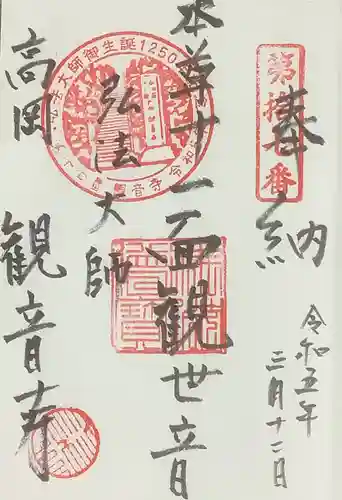 奉納
令和五年
三月十二日
本尊十一面観世音
弘法大師
高岡
観音寺
弘法大師御生誕1250